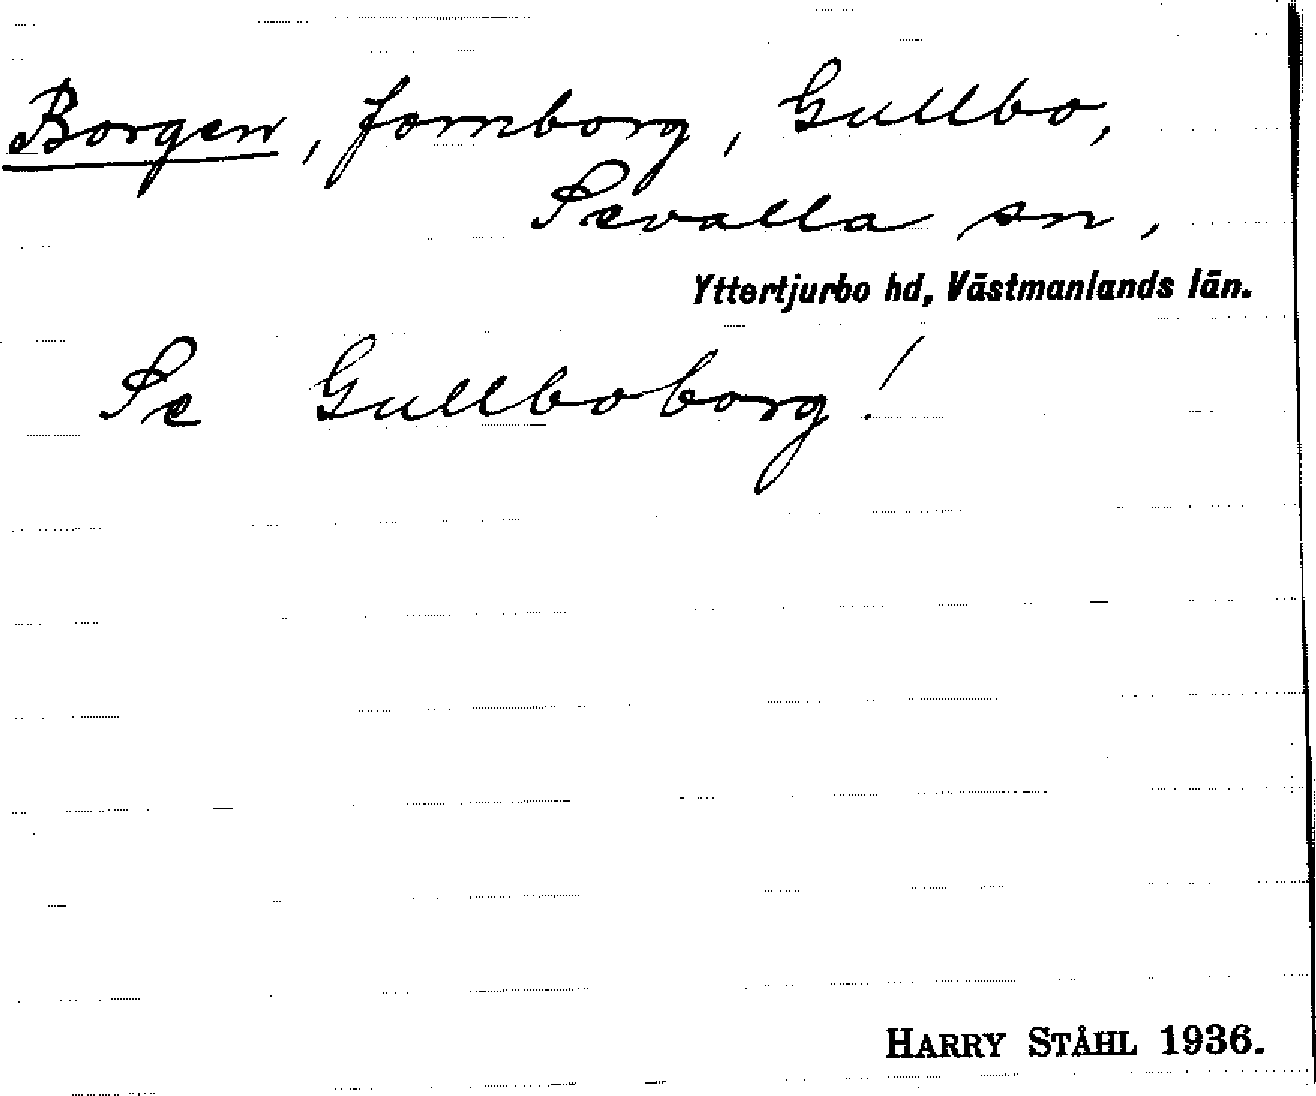 Borgen, fornborg, Gullbo,
Sevalla sn,
Yttertjurbo hd, Västmanlands län.
Se Gullboborg!
HARRY STÅHL 1936.